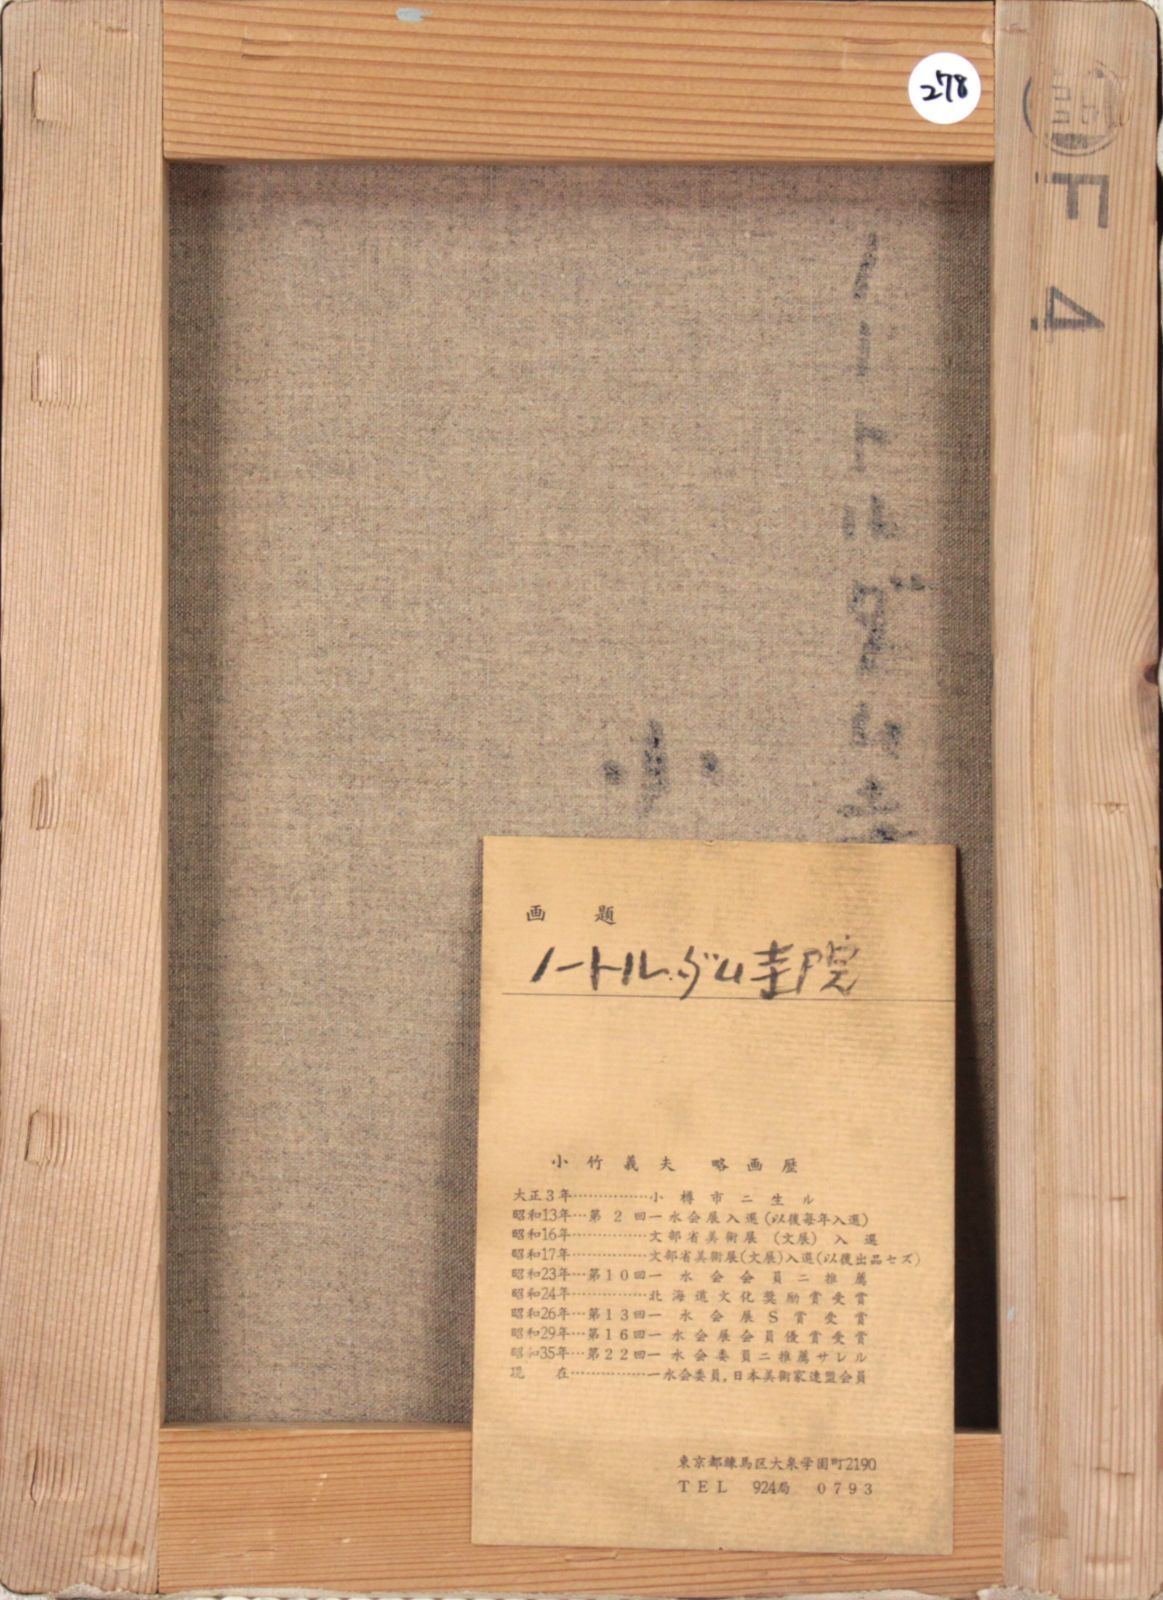 278
F 4
ノートルダム寺
小
画 題
ノートルダム寺院
小竹義夫 略画歴
大正3年……………小樽市ニ生ル
昭和13年…第2回一水会展入選(以後毎年入選)
昭和16年……………文部省美術展(文展)入選
昭和17年……………文部省美術展(文展)入選(以後出品セズ)
昭和23年…第10回一水会会員ニ推薦
昭和24年……………北海道文化奨励賞受賞
昭和26年…第13回一水会展S賞受賞
昭和29年…第16回一水会展会員優賞受賞
昭和35年…第22回一水会委員ニ推薦サレル
現 在……………一水会委員,日本美術家連盟会員
東京都練馬区大泉学園町2190
TEL 924局 0793